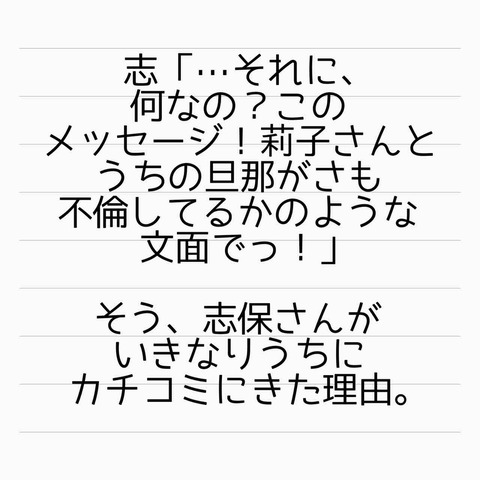 志「…それに、
何なの？この
メッセージ！莉子さんと
うちの旦那がさも
不倫してるかのような
文面でっ！」
そう、志保さんが
いきなりうちに
カチコミにきた理由。